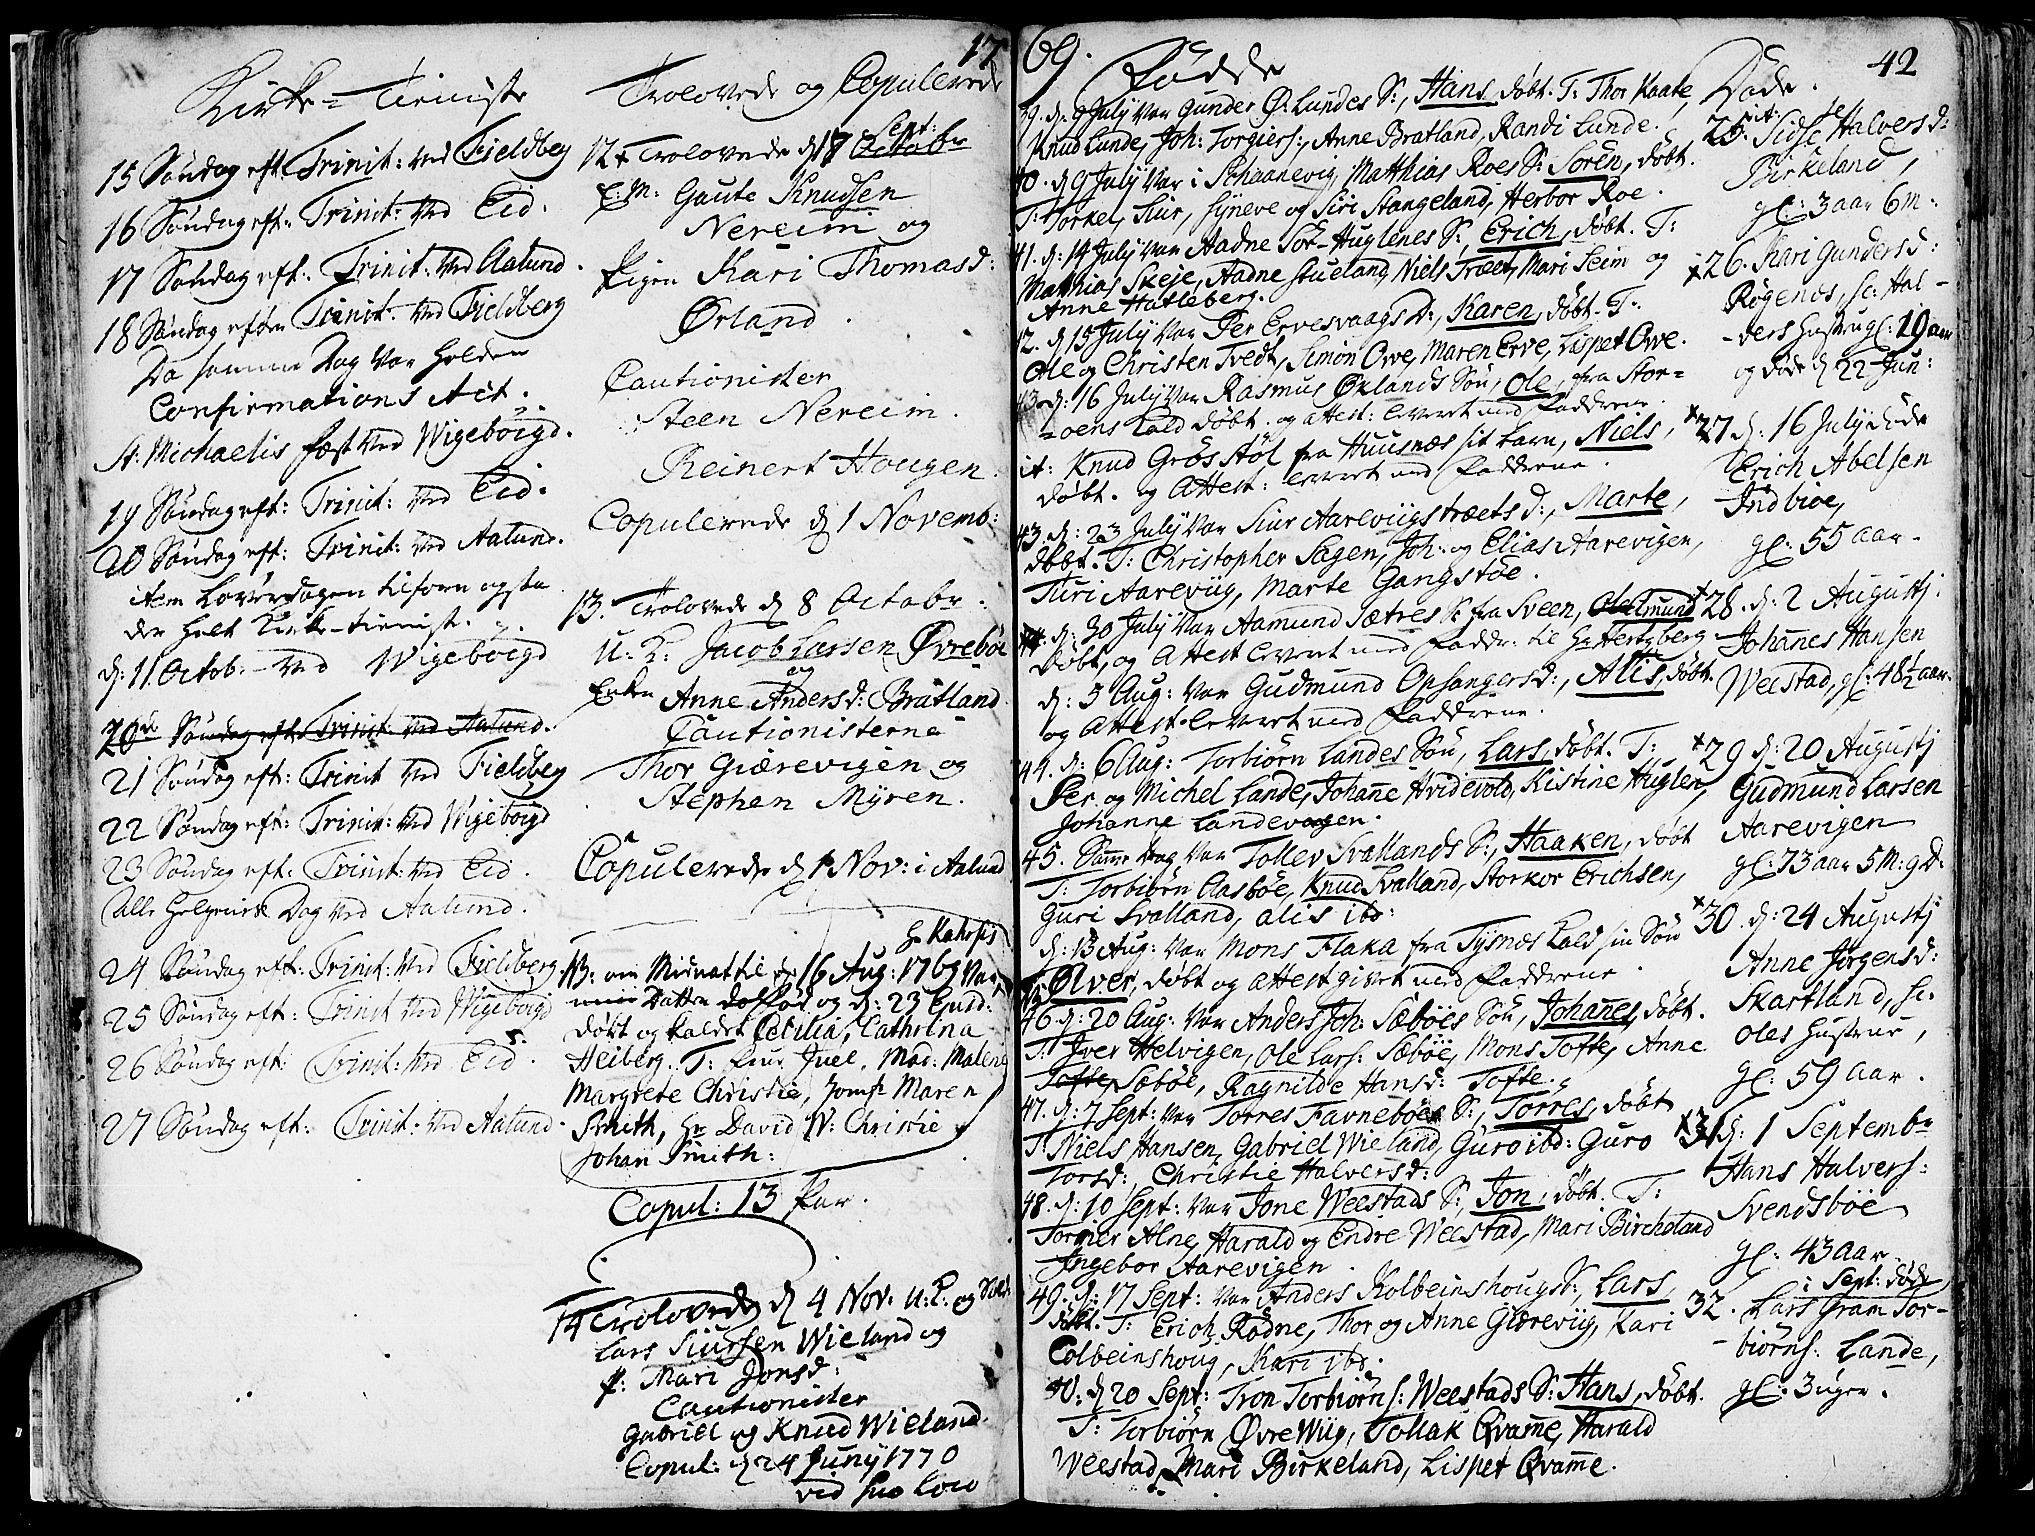 17
Kirke-Tieniste
15 Søndag eft. Trinit: ved Fieldberg
16 Søndag eft: Trinit: ved Eid.
17 Søndag eft: Trinit: ved Aalund.
18 Søndag efter Trinit: ved Fieldberg
Da samme Dag var holden
Confirmations Act.
St: Michaelis fæst ved Wigebøigd.
19 Søndag eft: Trinit: ved Eid.
20 Søndag eft: Trinit: ved Aalund.
item Løverdagen tilforn ogsaa
der holt Kirke-tienist.
d: 11 Octob. ved Wigebøigd
20de Søndag eft: Trinit: ved Aalund.
21 Søndag eft: Trinit ved Fieldberg
22 Søndag eft: Trinit: ved Wigebøigd
23 Søndag eft: Trinit: ved Eid.
Alle Helgenirs Dag ved Aalund.
24 Søndag eft: Trinit: ved Fieldberg
25 Søndag eft: Trinit ved Wigebøigd
26 Søndag eft: Trinit: ved Eid.
27 Søndag eft: Trinit: ved Aalund.
Trolovede og Copulerede
12 Trolovede d 17 Sept: Octobr
E.M: Gaute Knudsen
Nereim og
Pigen Kari Thomasd:
Ørland.
Cautionister
Steen Nereim.
Reinert Hougen.
Copulerede d 1 Novemb:
13. Trolovede d 8 Octobr.
U: K: Jacob Larsen Øvrebøe
og
Enken Anne Andersd: Bratland
Cautionisterne
Thor Giærevigen og
Stephen Myren.
Copulerede d 1 Nov: i Aalund
Hr Kahrses
NB: om Midnat til d: 16 Aug: 1769 var
min Datter født og d: 23 Ejusd:
døbt og kaldet Cecilia, Cathrina
Heiberg. T: Fru Juel, Mad: Malene
Margrete Christie, Jomf: Maren
Smith, Hr David W: Christie
Johan Smith:
Copul: 13 Par.
14 Trolovede d 4 Nov. u: K: og
Lars Siursen Wieland og
P: Mari Jonsd:
Cautionister
Gabriel og Knud Wieland.
Copul: d 24 Juny 1770
69.
Fødde
39. d: 9 July var Gunder Ø: Lundes S:, Hans, døbt. T: Thor Kaate,
Knud Lunde, Joh: Torgiers:, Anne Bratland, Randi Lunde.
40. d 9 July var i Schaanevig Matthias Roes S: Søren, døbt.
T: Torkel, Siur, Syneve og Siri Stangeland, Herbor Roe.
41. d: 14 July var Aadne Sør-Huglenes S:, Erich, døbt. T:
Matthias Skeje, Aadne Stueland, Niels Træet, Mari Seim og
Anne Hatleberg.
42. d 15 July var Per Ervesvaags D:, Karen, døbt. T:
Ole og Christen Tvedt, Simon Ovve, Maren Erve, Lispet Ovve.
43. d: 16 July var Rasmus Ørlands Søn, Ole, fra Stor-
-øens Kald døbt. og attest: levert med Fadderne.
it: Knud Grøsstøl fra Huusnæs sit barn, Niels,
døbt. og Attest: levert med Fadderne.
43. d: 23 July var Siur Aareviigstræets d:, Marte,
døbt. T: Christopher Sagen, Joh: og Elias Aarevigen,
Turi Aareviig, Marte Gangstøe.
44. d: 30 July var Aamund Sætres S: fra Sveen,
Døbt, og Attest levert med Faddr: til Hr Hertzberg
d: 5 Aug: var Gudmund Opsangers d:, Alis, døbt.
og Attest: levert med Fadderne.
44. d. 6 Aug: Torbiørn Landes Søn, Lars, døbt. T:
Per og Michel Lande, Johanne Hvidevold, Kistine Huglen,
Johanne Landevaagen.
45. Samme Dag var Tollev Svallands S:, Haaken, døbt
T: Torbiørn Aasbøe, Knud Svalland, Storkor Erichsen,
Guri Svalland, Alis ibd:
d: 13 Aug: var Mons Flaka fra Tysnæs Kald sin Søn
Ølver, døbt og attest givet med Fadderne.
46. d: 20 Aug: var Anders Joh: Sæbøes Søn, Johannes, døbt.
T: Iver Helvigen, Ole Lars: Sæbøe, Mons Tofte, Anne
Tofte, Sæbøe, Ragnilde Hansd: Tofte.
47. d: 7 Sept: var Torres Favnebøes S:, Torres, døbt
T: Niels Hansen, Gabriel Wieland, Guro ibd: Guro
Torsd:, Christie Halversd:
48. d: 10 Sept: var Jone Weestads S:, Jon, døbt. T:
Torgier Alne, Harald og Endre Weestad, Mari Bircheland
Ingebor Aarevigen.
49. d: 17 Sept: var Anders Kolbeinshougs S:, Lars,
døbt. T: Erich Rødne, Thor og Anne Giæreviig, Kari
Colbeinshoug, Kari ibd.
50. d 20 Sept: Tron Torbiørns: Weestads S: Hans, døbt.
T: Torbiørn Øvre Wiig, Tollak Qvamme, Harald
Weestad, Mari Birkeland, Lispet Qvamme.
42
Døde.
25. Sidse Halversd:
Birkeland,
gl: 3 aar 6 m:
26. Kari Gundersd:
Røgenæs, sc: Hal-
-vers Hustru gl: 19 aar
og døde d 22 Jun:
27 d: 16 July døde
Erich Abelsen
Indbioe,
gl: 55 aar.
28. d: 2 Augustj:
Johannes Hansen
Weestad, gl: 48½ aar.
29 d: 20 Augustj
Gudmund Larsen
Aarevigen
gl: 73 aar 5 M: 9 D:
30. d: 24 Augustj
Anne Jørgensd:
Skartland, sc:
Oles Hustrue,
gl: 59 aar.
31 d: 1 Septembr
Hans Halvers:
Svendsbøe
gl: 43 aar.
i Sept: døde
32. Lars Gram Tor-
-biørns: Lande,
gl: 3 uger.